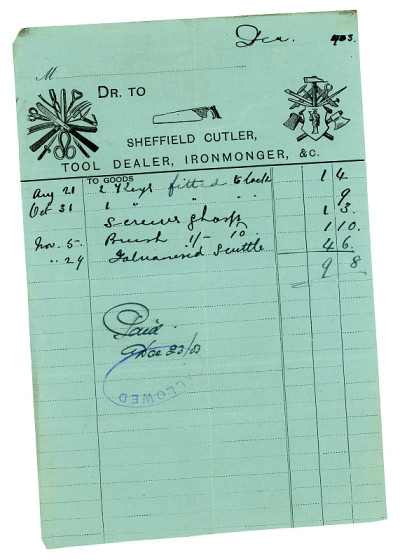 Dec. 1903.
M
DR. TO
SHEFFIELD CUTLER,
TOOL DEALER, IRONMONGER, &C.
TO GOODS
Aug 21 2 Keys fitted to lock 1 4
Oct 31 1 " " " 9
Screws & hasp 1 3
Nov. 5 Brush 1/- 10 1 10
" 29 Galvanised Scuttle 4 6
9 8
Paid
Dec 23/03
ALLOWED